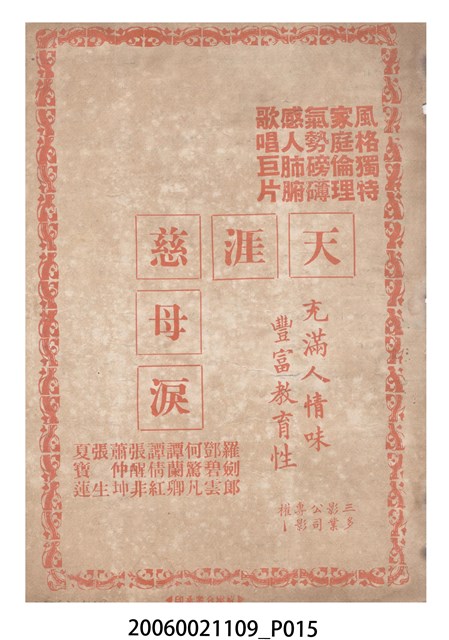 風格獨特
家庭倫理
氣勢磅礴
感人肺腑
歌唱巨片
天涯慈母淚
充滿人情味
豐富教育性
三多影業公司專影權
羅劍郎
鄧碧雲
何驚凡
譚蘭卿
譚倩紅
張醒非
蕭仲坤
張生
夏寶蓮
20060021109_P015